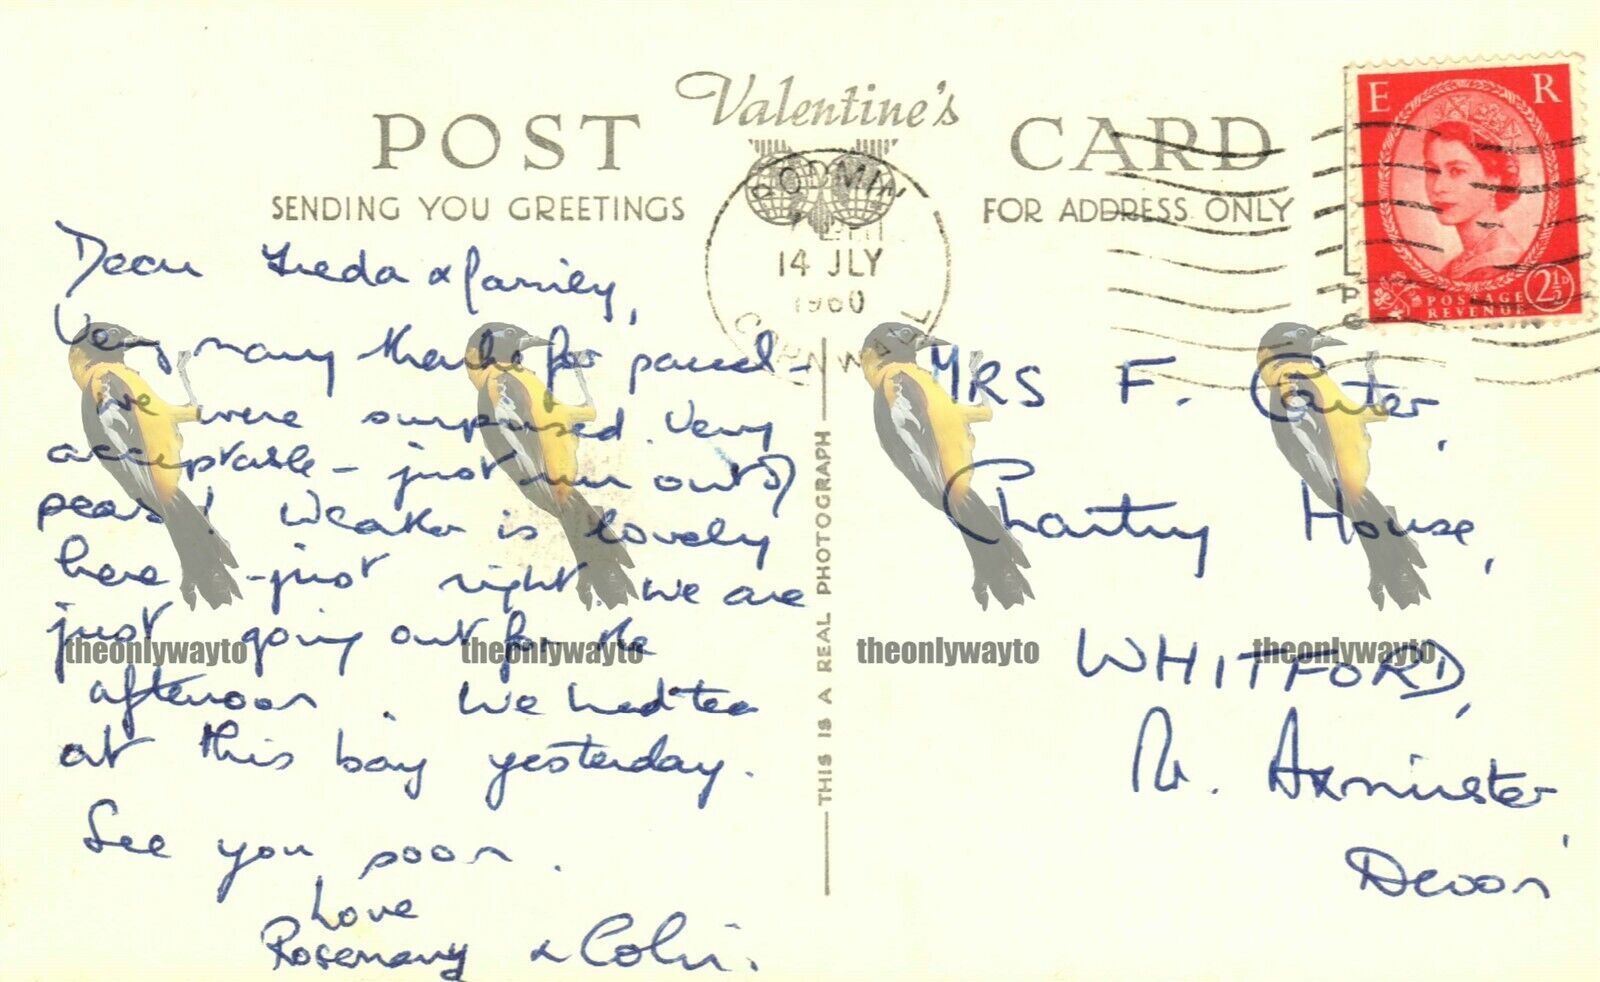 Valentine's
POST CARD
SENDING YOU GREETINGS
FOR ADDRESS ONLY
BODMIN
14 JLY
1960
CORNWALL
E R
POSTAGE
REVENUE
2½D
Dear Freda & family,
Very many thanks for parcel -
we were surprised. Very
acceptable - just run out of
pears! Weather is lovely
here - just right. We are
just going out for the
afternoon. We had tea
at this bay yesterday.
See you soon.
Love
Rosemary & Colin.
THIS IS A REAL PHOTOGRAPH
MRS F. Carter,
Chantry House,
WHITFORD,
Nr. Axminster,
Devon
theonlywayto theonlywayto theonlywayto theonlywayto